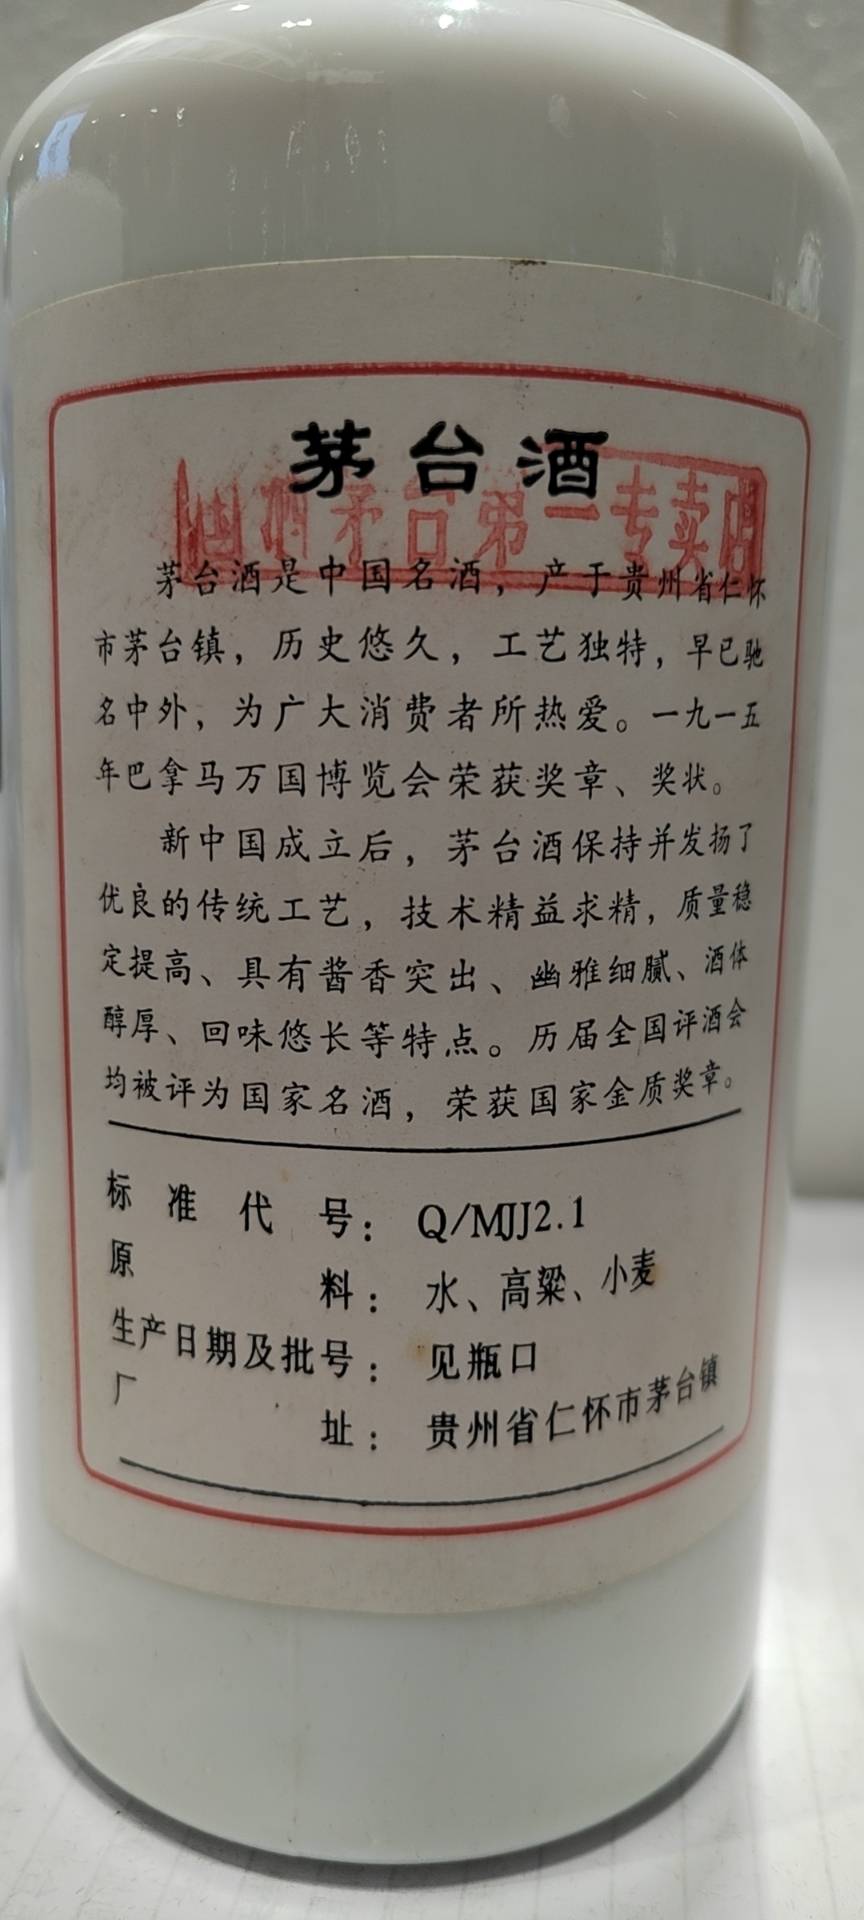 茅台酒
国酒茅台第一专卖店
茅台酒是中国名酒，产于贵州省仁怀
市茅台镇，历史悠久，工艺独特，早已驰
名中外，为广大消费者所热爱。一九一五
年巴拿马万国博览会荣获奖章、奖状。
新中国成立后，茅台酒保持并发扬了
优良的传统工艺，技术精益求精，质量稳
定提高、具有酱香突出、幽雅细腻、酒体
醇厚、回味悠长等特点。历届全国评酒会
均被评为国家名酒，荣获国家金质奖章。
标准代号：Q/MJJ2.1
原料：水、高粱、小麦
生产日期及批号：见瓶口
厂址：贵州省仁怀市茅台镇